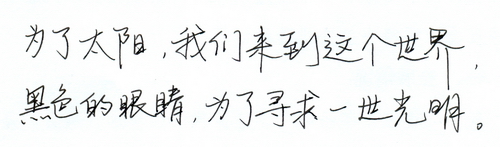 为了太阳，我们来到这个世界，
黑色的眼睛，为了寻求一世光明。